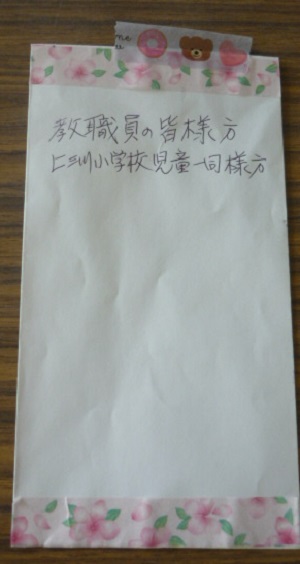 me
教職員の皆様方
上三川小学校児童一同様方